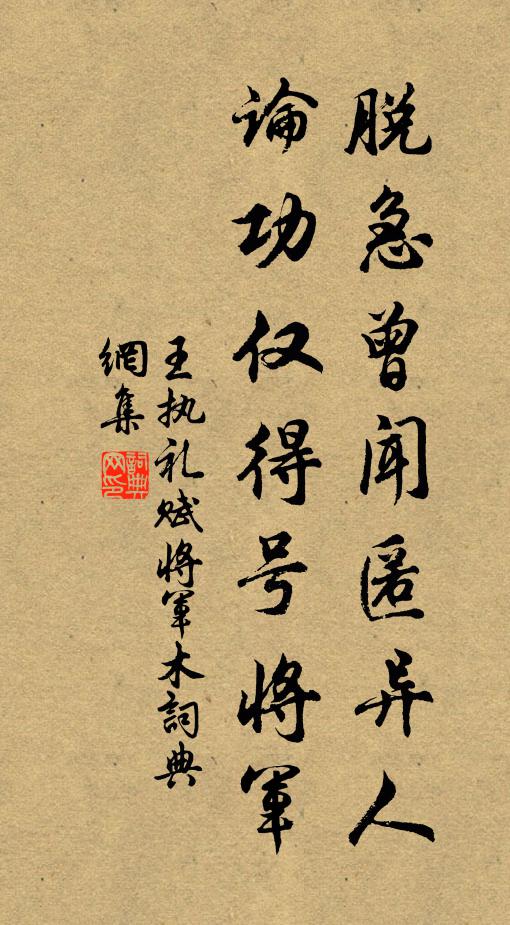 脱急曾闻匿异人
論功仅得号将軍
王执礼赋将軍木詞典
網集
詞典
网印